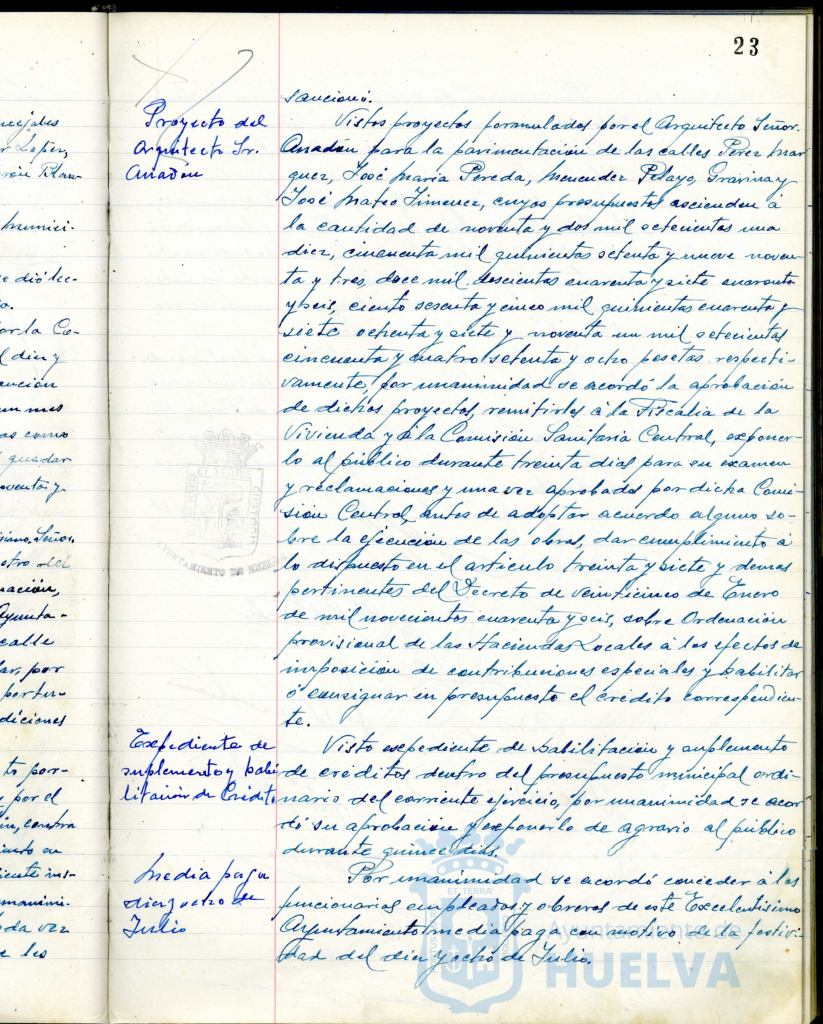 23
sancionó.
Proyecto del
Arquitecto Sr.
Anadón
Vistos proyectos formulados por el Arquitecto Señor
Anadón para la pavimentación de las calles Pérez Mar
quez, José María Pereda, Menendez Pelayo, Gravina y
José Mateo Jimenez, cuyos presupuestos ascienden á
la cantidad de noventa y dos mil setecientas una
diez, cincuenta mil quinientas setenta y nueve noven-
ta y tres, doce mil doscientas cuarenta y siete cuarenta
y seis, ciento sesenta y cinco mil quinientas cuarenta y
siete ochenta y siete y noventa un mil setecientas
cincuenta y cuatro setenta y ocho pesetas respecti-
vamente, por unanimidad se acordó la aprobación
de dichos proyectos, remitirlos á la Fiscalia de la
Vivienda y á la Comisión Sanitaria Central, exponer-
lo al público durante treinta dias para su examen
y reclamaciones y una vez aprobados por dicha Comi-
sión Central, antes de adoptar acuerdo alguno so-
bre la ejecución de las obras, dar cumplimiento á
lo dispuesto en el articulo treinta y siete y demas
pertinentes del Decreto de veinticinco de Enero
de mil novecientos cuarenta y seis, sobre Ordenación
provisional de las Haciendas Locales á los efectos de
imposición de contribuciones especiales y habilitar
ó consignar en presupuesto el crédito correspondien-
te.
Expediente de
suplemento y habi
litación de Crédito
Visto expediente de habilitación y suplemento
de créditos dentro del presupuesto municipal ordi-
nario del corriente ejercicio, por unanimidad se acor
dó su aprobación y exponerlo de agravio al público
durante quince dias.
Media paga
diez y ocho de
Julio
Por unanimidad se acordó conceder á los
funcionarios empleados y obreros de este Excelentisimo
Ayuntamiento media paga con motivo de la festivi-
dad del diez y ocho de Julio.
Ayuntamiento de
HUELVA